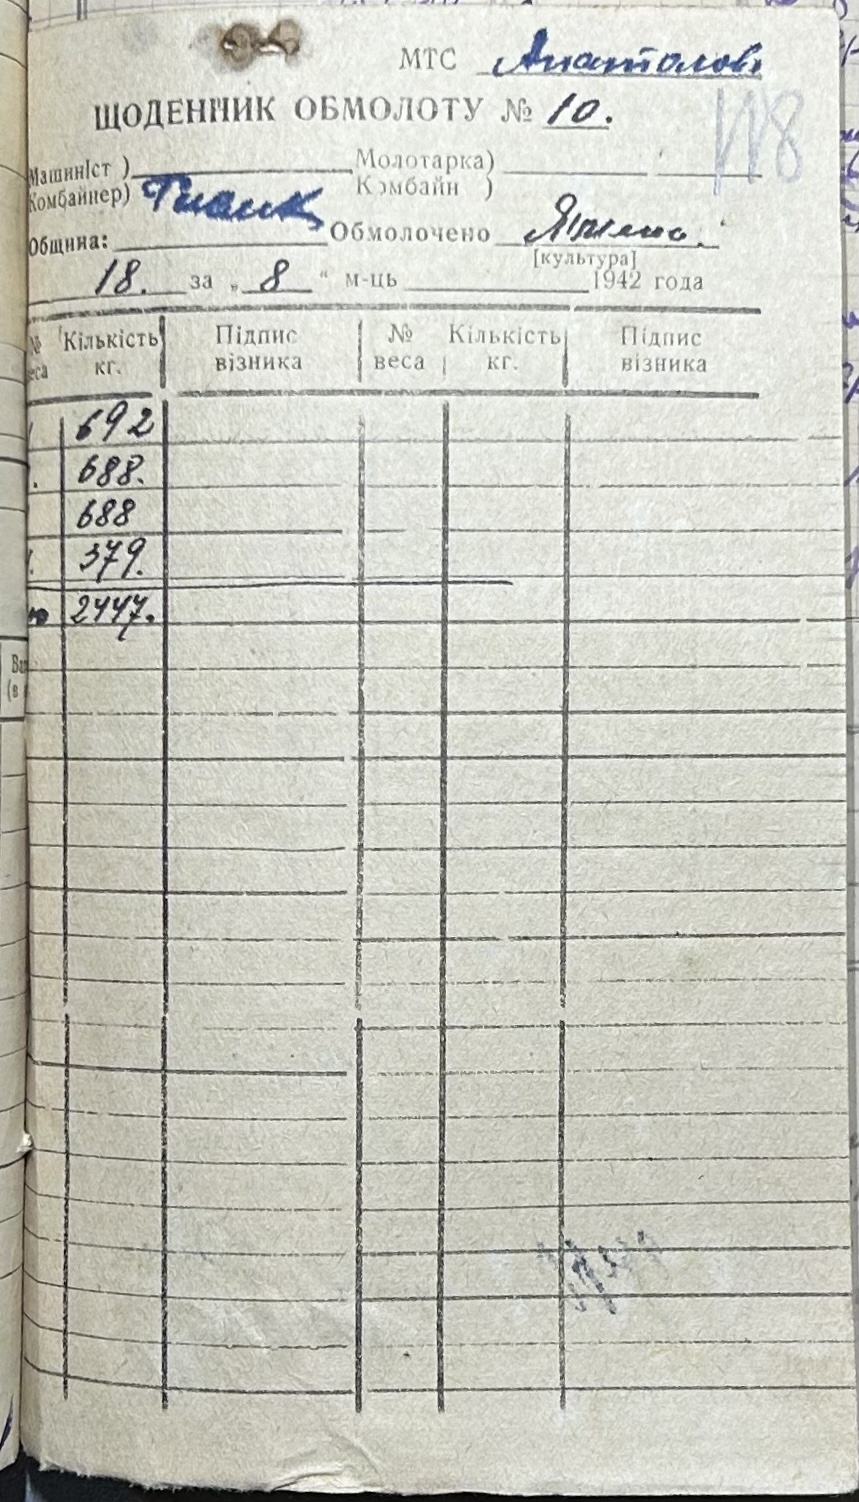 МТС Анатолов
ЩОДЕННИК ОБМОЛОТУ № 10.
118
Машиніст ) Молотарка)
Комбайнер) Комбайн )
Община: Обмолочено Ячмень
[культура]
18. за „ 8 “ м-ць 1942 года
№ Кількість Підпис № Кількість Підпис
веса кг. візника веса кг. візника
692
688.
688
379.
2447.